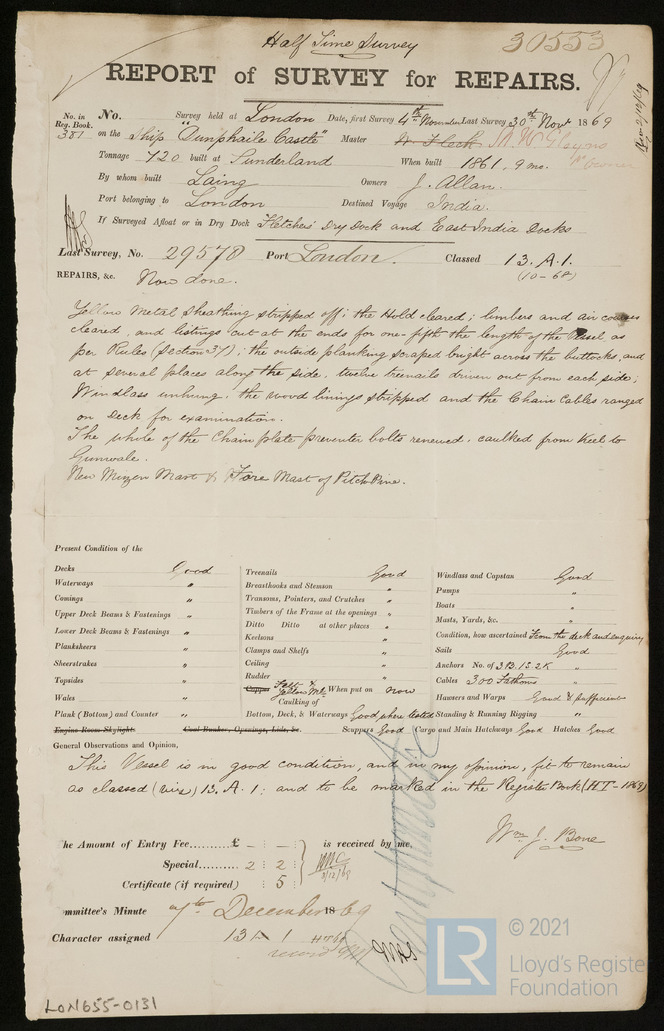 Half Time Survey
30553
REPORT of SURVEY for REPAIRS.
No. in Reg. Book. No. Survey held at London Date, first Survey 4th November Last Survey 30th Novr 1869
381 on the Ship "Dunphaile Castle" Master W. Fleck
Tonnage 720 built at Sunderland When built 1861, 9 mo.
By whom built Laing Owners J. Allan.
Port belonging to London Destined Voyage India.
If Surveyed Afloat or in Dry Dock Fletchers' Dry Dock and East India Docks
Last Survey, No. 29578 Port London. Classed 13. A. 1.
(10-68)
REPAIRS, &c. Now done.
Yellow Metal Sheathing stripped off; the Hold cleared; limbers and air courses
cleared, and listings cut at the ends for one-fifth the length of the Vessel, as
per Rules (Section 37); the outside planking scraped bright across the buttocks, and
at several places along the side, twelve treenails driven out from each side;
Windlass unhung, the wood linings stripped and the Chain Cables ranged
on Deck for examination.
The whole of the Chain plate preventer bolts renewed, caulked from Keel to
Gunwale.
New Mizen Mast & Fore Mast of Pitch Pine.
Present Condition of the
Decks Good
Waterways "
Comings "
Upper Deck Beams & Fastenings "
Lower Deck Beams & Fastenings "
Planksheers "
Sheerstrakes "
Topsides "
Wales "
Plank (Bottom) and Counter "
Engine Room Skylight Coal Bunker, Openings, Lids, &c.
Treenails Good
Breasthooks and Stemson "
Transoms, Pointers, and Crutches "
Timbers of the Frame at the openings "
Ditto Ditto at other places "
Keelsons "
Clamps and Shelfs "
Ceiling "
Rudder "
Copper Felt & Yellow Mtl When put on now
Caulking of
Bottom, Deck, & Waterways Good where tested
Scuppers Good Cargo and Main Hatchways Good Hatches Good
Windlass and Capstan Good
Pumps "
Boats "
Masts, Yards, &c. "
Condition, how ascertained From the deck and enquiry
Sails Good
Anchors No. of 3 B. 1 S. 2 K "
Cables 300 Fathoms "
Hawsers and Warps Good & sufficient
Standing & Running Rigging "
General Observations and Opinion,
This Vessel is in good condition, and in my opinion, fit to remain
as classed (viz) 13. A. 1; and to be marked in the Register Book (HT-1869)
Wm J. Bone
he Amount of Entry Fee.........£ - : - : is received by me,
Special......... 2 : 2 :
Certificate (if required) : 5 :
ommittee's Minute 7th December 1869
Character assigned 13 A 1
© 2021
LR Lloyd's Register
Foundation
LON655-0131